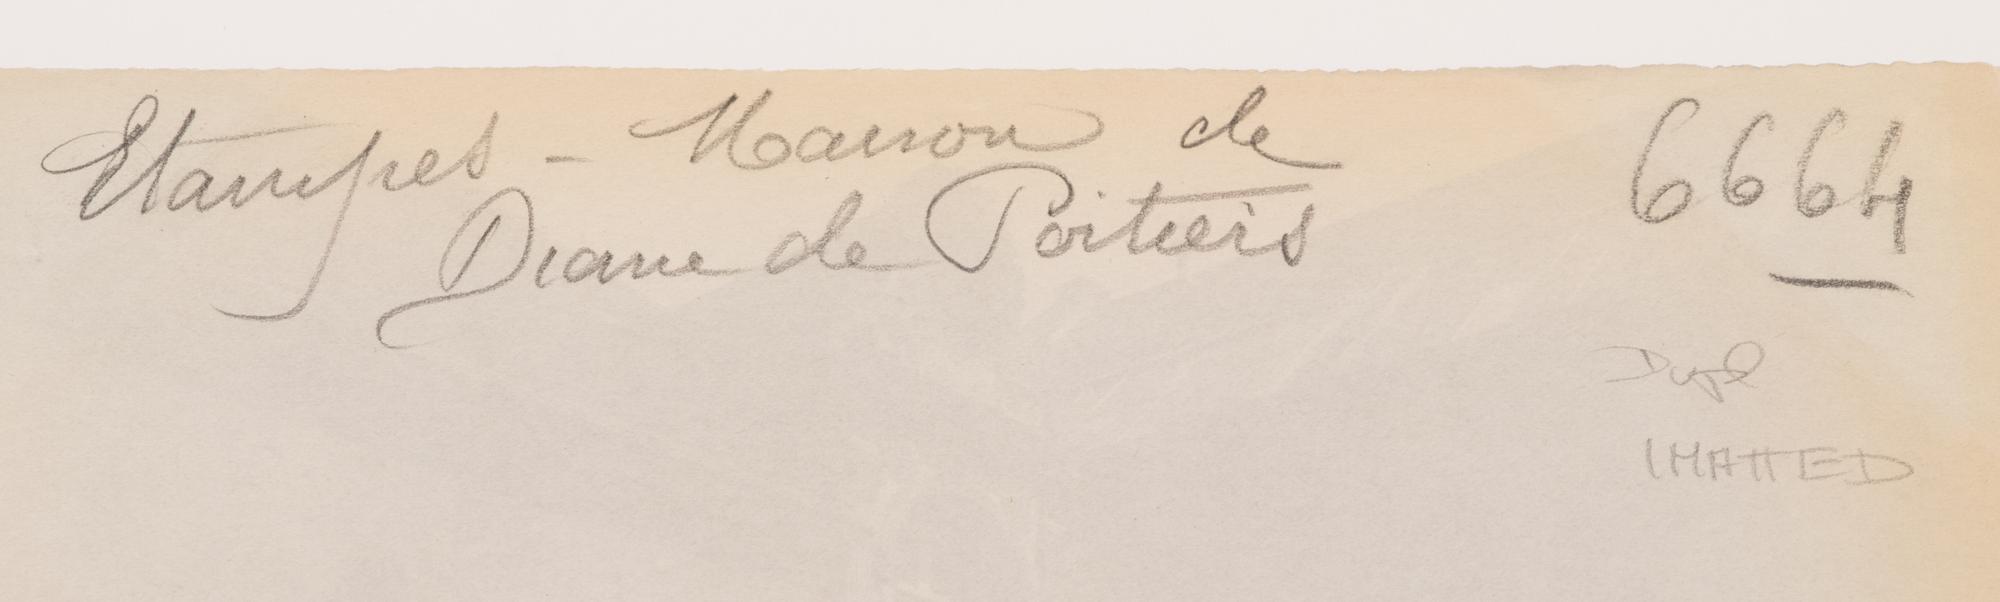 Etampes - Maison de 6664
Diane de Poitiers
Dupl
1 MATTED